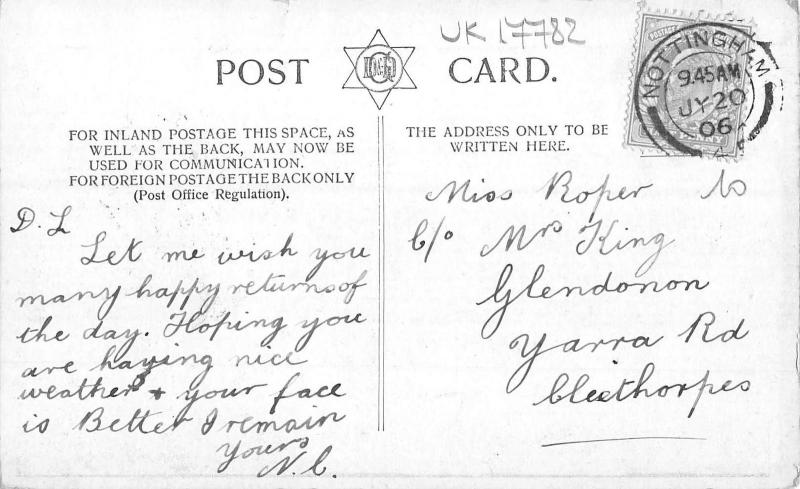 UK 17782
POST CARD.
NOTTINGHAM
9.45AM
JY 20
06
FOR INLAND POSTAGE THIS SPACE, AS
WELL AS THE BACK, MAY NOW BE
USED FOR COMMUNICATION.
FOR FOREIGN POSTAGE THE BACK ONLY
(Post Office Regulation).
D. L
Let me wish you
many happy returns of
the day. Hoping you
are having nice
weather & your face
is Better I remain
Yours
N. C.
THE ADDRESS ONLY TO BE
WRITTEN HERE.
Miss Roper
C/o Mrs King
Glendonon
Yarra Rd
Cleethorpes